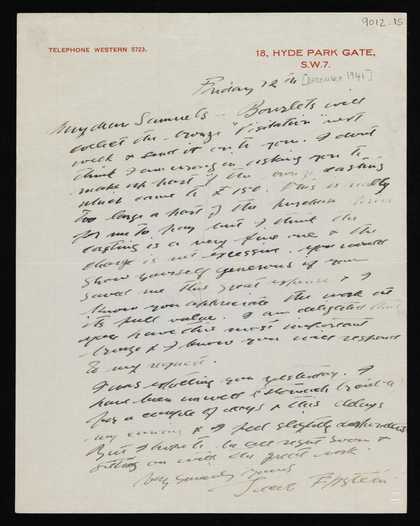 9012.15
TELEPHONE WESTERN 5723.
18, HYDE PARK GATE,
S.W.7.
Friday 12th [DECEMBER 1941]
My dear Samuels – Bourlets will
collect the bronze "Visitation" next
week & send it on to you. I don't
think I am wrong in asking you to
make up part of the bronze casting
which came to £150. This is really
too large a part of the purchase
for me to pay but I think the
casting is a very fine one & the
charge is not excessive. You would
show yourself generous if you
saved me this great expense & I
know you appreciate the work at
its full value. I am delighted that
you have this most important
bronze & I know you will respond
to my request.
I was expecting you yesterday. I
have been unwell & stomach trouble
for a couple of days & this delays
my coming & I feel slightly
But I hope to be all right soon &
on with the great work.
Very sincerely yours
Jacob Epstein